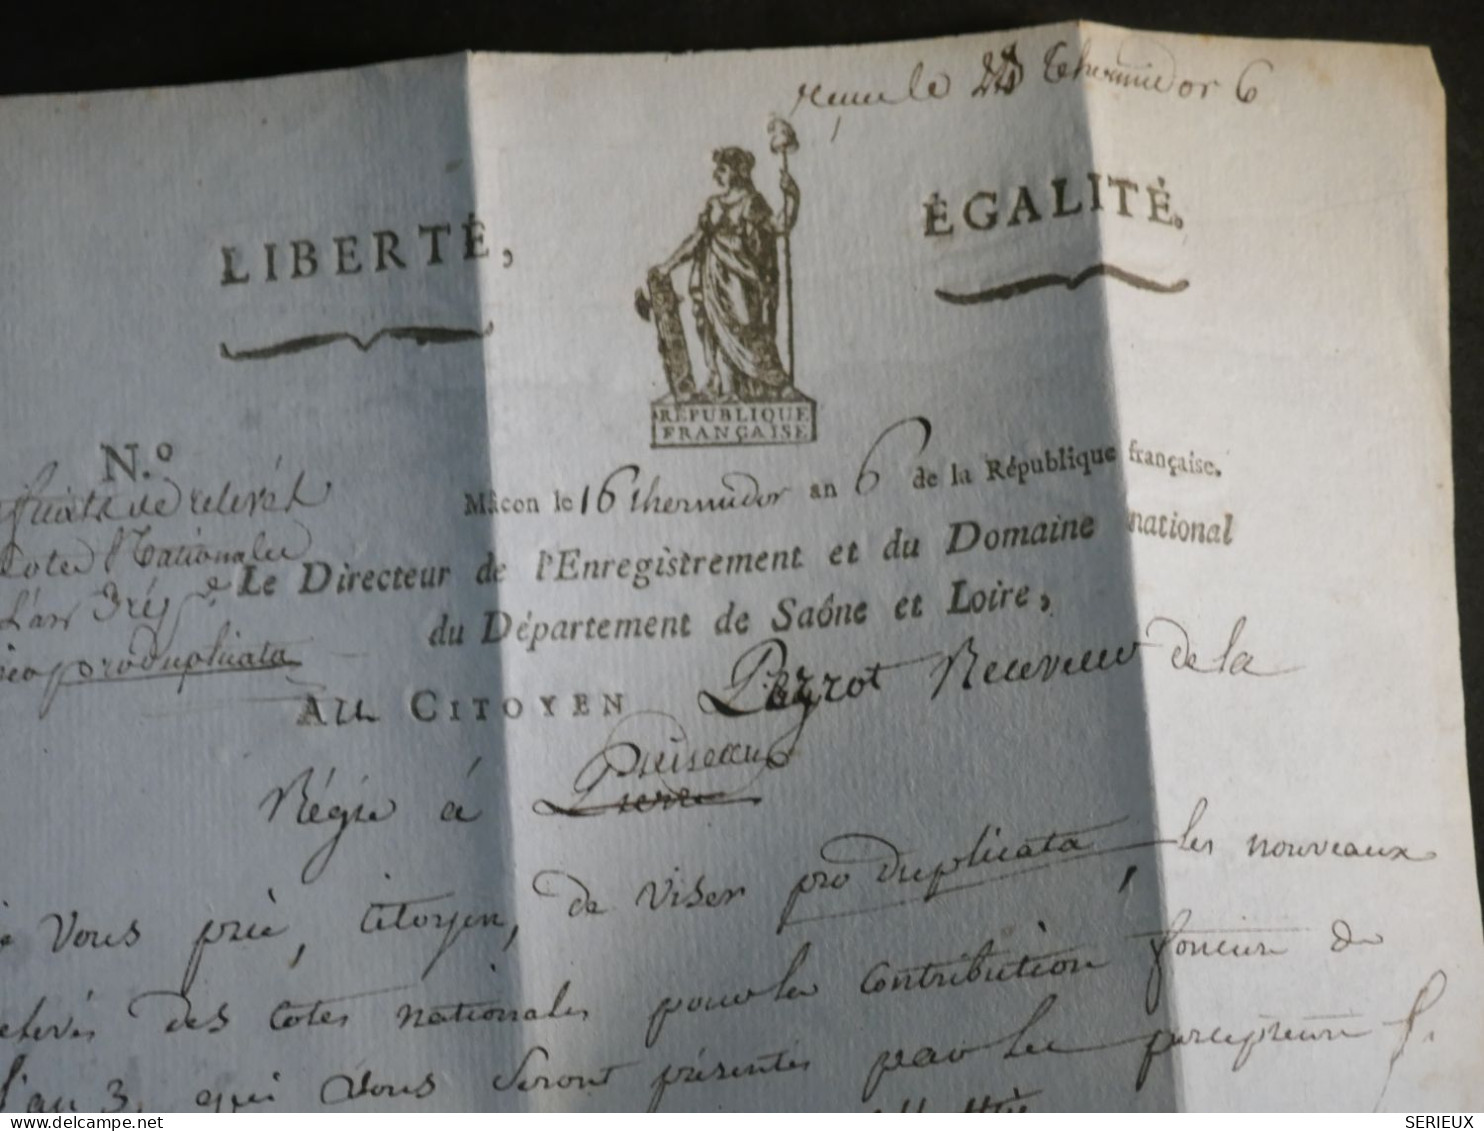 reçu le 22 thermidor 6
LIBERTÉ,
ÉGALITÉ.
RÉPUBLIQUE
FRANÇAISE
N.º
de relevés
Cotes Nationales
L'an 3
produplicata
Mâcon le 16 thermidor an 6 de la République française.
Le Directeur de l'Enregistrement et du Domaine national
du Département de Saône et Loire,
Au CITOYEN Peyrot Receveur de la
Régie à Pierre Cuiseaux
Vous prie, Citoyen, de viser pro duplicata, les nouveaux
relevés des Cotes nationales pour la contribution fonciere de
l'an 3, qui vous seront présentés par les percepteurs
SERIEUX